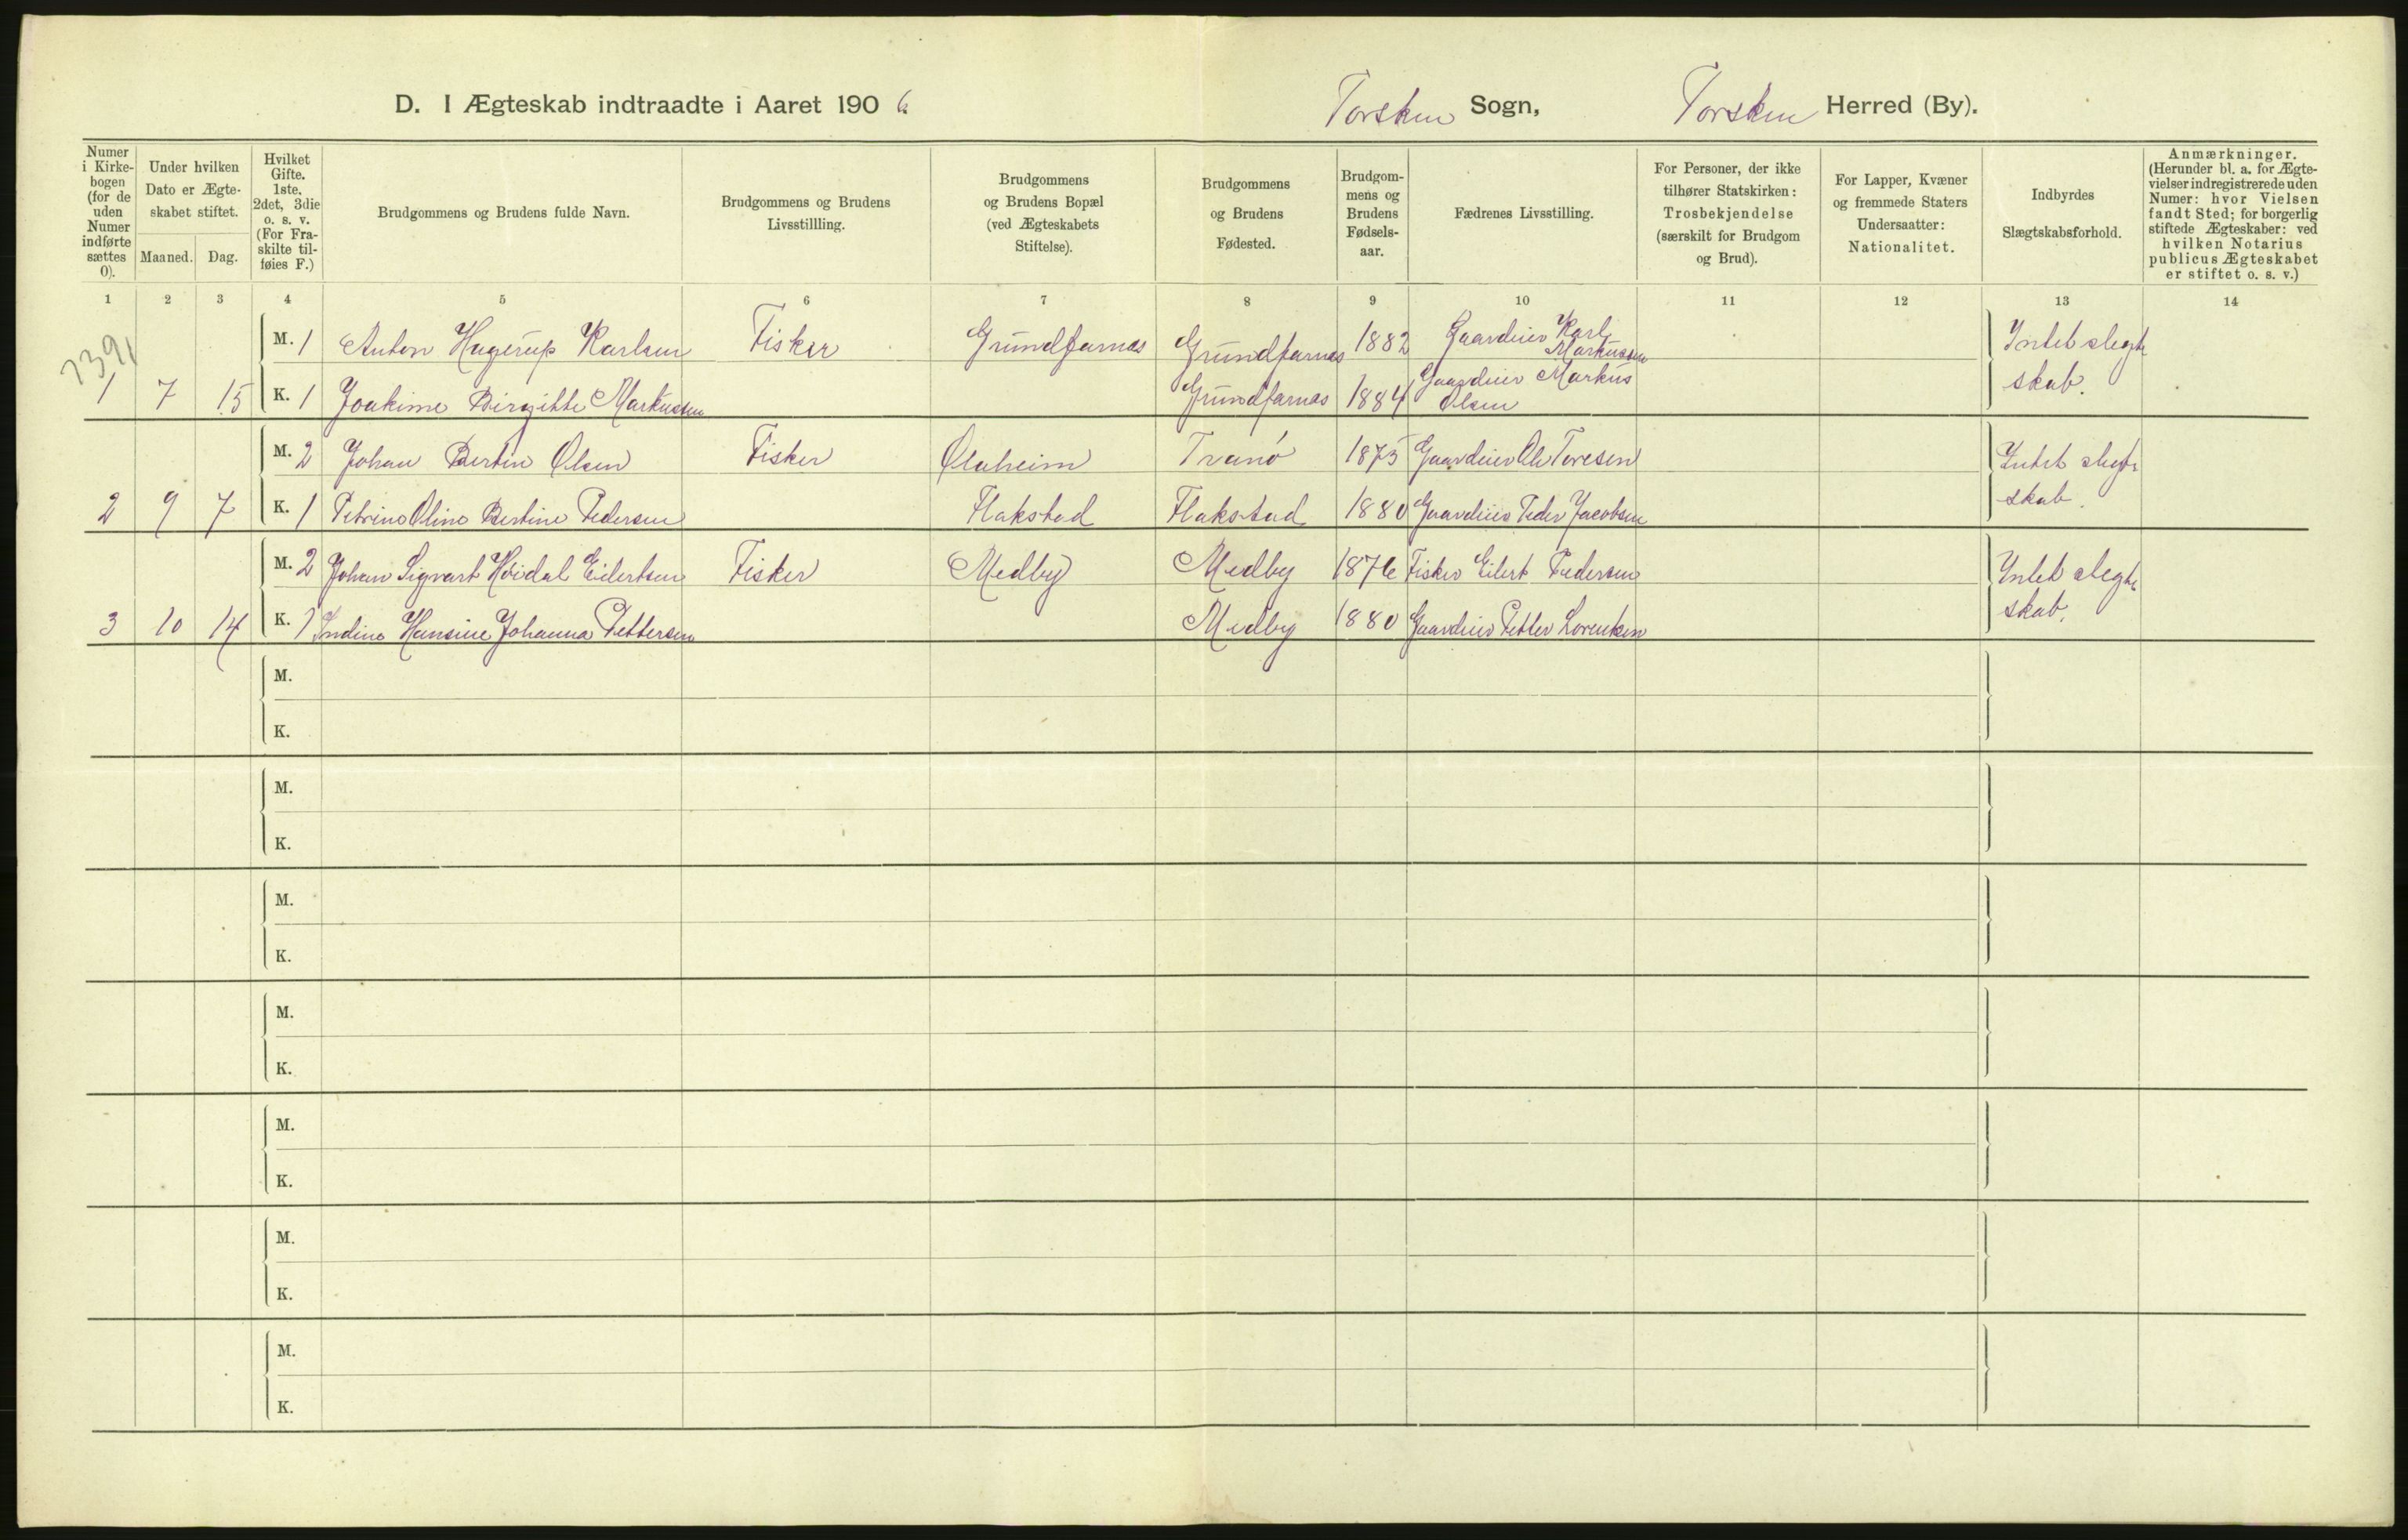 D. I Ægteskab indtraadte i Aaret 1906 Torsken Sogn, Torsken Herred (By).
Numer i Kirkebogen (for de uden Numer indførte sættes 0).
Under hvilken Dato er Ægteskabet stiftet.
Maaned. Dag.
Hvilket Gifte. 1ste, 2det, 3die o. s. v. (For Fraskilte tilføies F.)
Brudgommens og Brudens fulde Navn.
Brudgommens og Brudens Livsstillling.
Brudgommens og Brudens Bopæl (ved Ægteskabets Stiftelse).
Brudgommens og Brudens Fødested.
Brudgommens og Brudens Fødselsaar.
Fædrenes Livsstilling.
For Personer, der ikke tilhører Statskirken: Trosbekjendelse (særskilt for Brudgom og Brud).
For Lapper, Kvæner og fremmede Staters Undersaatter: Nationalitet.
Indbyrdes Slægtskabsforhold.
Anmærkninger. (Herunder bl. a. for Ægtevielser indregistrerede uden Numer: hvor Vielsen fandt Sted; for borgerlig stiftede Ægteskaber: ved hvilken Notarius publicus Ægteskabet er stiftet o. s. v.)
1 2 3 4 5 6 7 8 9 10 11 12 13 14
M. 1 Anton Hagerup Karlsen Fisker Grundfarnæs Grundfarnes 1882 Gaardeier Karl Markussen Intet slegt
1 7 15 K. 1 Joakime Birgitte Markussen Grundfarnæs 1884 Gaardeier Markus Olsen skab.
M. 2 Johan Bertin Olsen Fisker Olaheim Tranö 1875 Gaardeier Ole Toresen Intet slegt
2 9 7 K. 1 Petrine Oline Bertine Pedersen Flakstad Flakstad 1880 Gaardeier Peder Jacobsen skab.
M. 2 Johan Sigvart Höidal Eilertsen Fisker Medby Medby 1876 Fisker Eilert Pedersen Intet slegt
3 10 14 K. 1 Indine Hansine Johanna Pettersen Medby 1880 Gaardeier Petter Lorentsen skab.
M.
K.
M.
K.
M.
K.
M.
K.
M.
K.
M.
K.
M.
K.